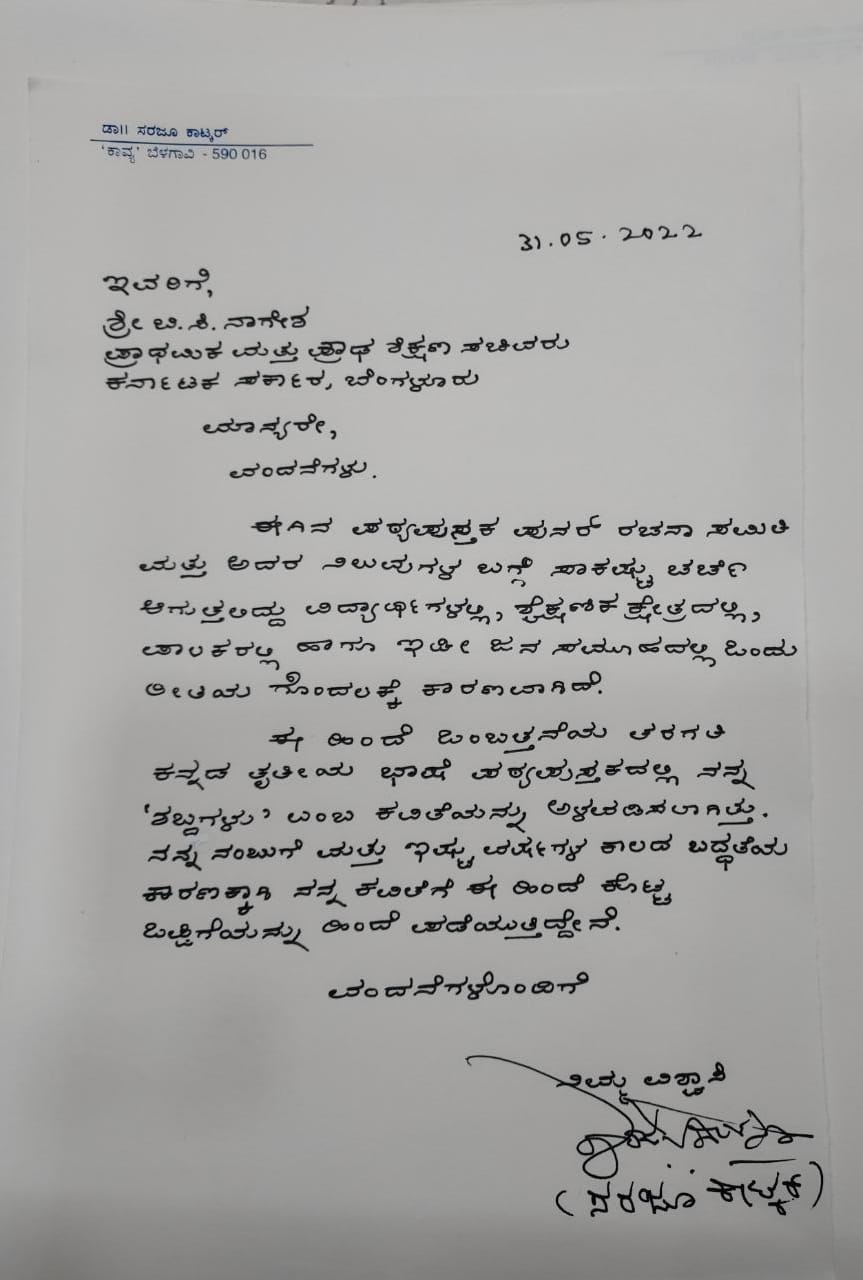 ಡಾ|| ಸರಜೂ ಕಾಟ್ಕರ್
'ಕಾವ್ಯ' ಬೆಳಗಾವಿ - 590 016
31.05.2022
ಇವರಿಗೆ,
ಶ್ರೀ ಬಿ.ಸಿ. ನಾಗೇಶ
ಪ್ರಾಥಮಿಕ ಮತ್ತು ಪ್ರೌಢ ಶಿಕ್ಷಣ ಸಚಿವರು
ಕರ್ನಾಟಕ ಸರ್ಕಾರ, ಬೆಂಗಳೂರು
ಮಾನ್ಯರೇ,
ವಂದನೆಗಳು.
ಈಗಿನ ಪಠ್ಯಪುಸ್ತಕ ಪುನರ್ ರಚನಾ ಸಮಿತಿ
ಮತ್ತು ಅದರ ನಿಲುವುಗಳ ಬಗ್ಗೆ ಸಾಕಷ್ಟು ಚರ್ಚೆ
ಆಗುತ್ತಲಿದ್ದು ವಿದ್ಯಾರ್ಥಿಗಳಲ್ಲಿ, ಶೈಕ್ಷಣಿಕ ಕ್ಷೇತ್ರದಲ್ಲಿ,
ಪಾಲಕರಲ್ಲಿ ಹಾಗೂ ಇಡೀ ಜನ ಸಮೂಹದಲ್ಲಿ ಒಂದು
ರೀತಿಯ ಗೊಂದಲಕ್ಕೆ ಕಾರಣವಾಗಿದೆ.
ಈ ಹಿಂದೆ ಒಂಬತ್ತನೆಯ ತರಗತಿ
ಕನ್ನಡ ತೃತೀಯ ಭಾಷೆ ಪಠ್ಯಪುಸ್ತಕದಲ್ಲಿ ನನ್ನ
'ಶಬ್ದಗಳು' ಎಂಬ ಕವಿತೆಯನ್ನು ಅಳವಡಿಸಲಾಗಿತ್ತು.
ನನ್ನ ನಂಬುಗೆ ಮತ್ತು ಇಷ್ಟು ವರ್ಷಗಳ ಕಾಲದ ಬದ್ಧತೆಯ
ಕಾರಣಕ್ಕಾಗಿ ನನ್ನ ಕವಿತೆಗೆ ಈ ಹಿಂದೆ ಕೊಟ್ಟ
ಒಪ್ಪಿಗೆಯನ್ನು ಹಿಂದೆ ಪಡೆಯುತ್ತಿದ್ದೇನೆ.
ವಂದನೆಗಳೊಂದಿಗೆ
ನಿಮ್ಮ ವಿಶ್ವಾಸಿ
(ಸರಜೂ ಕಾಟ್ಕರ)